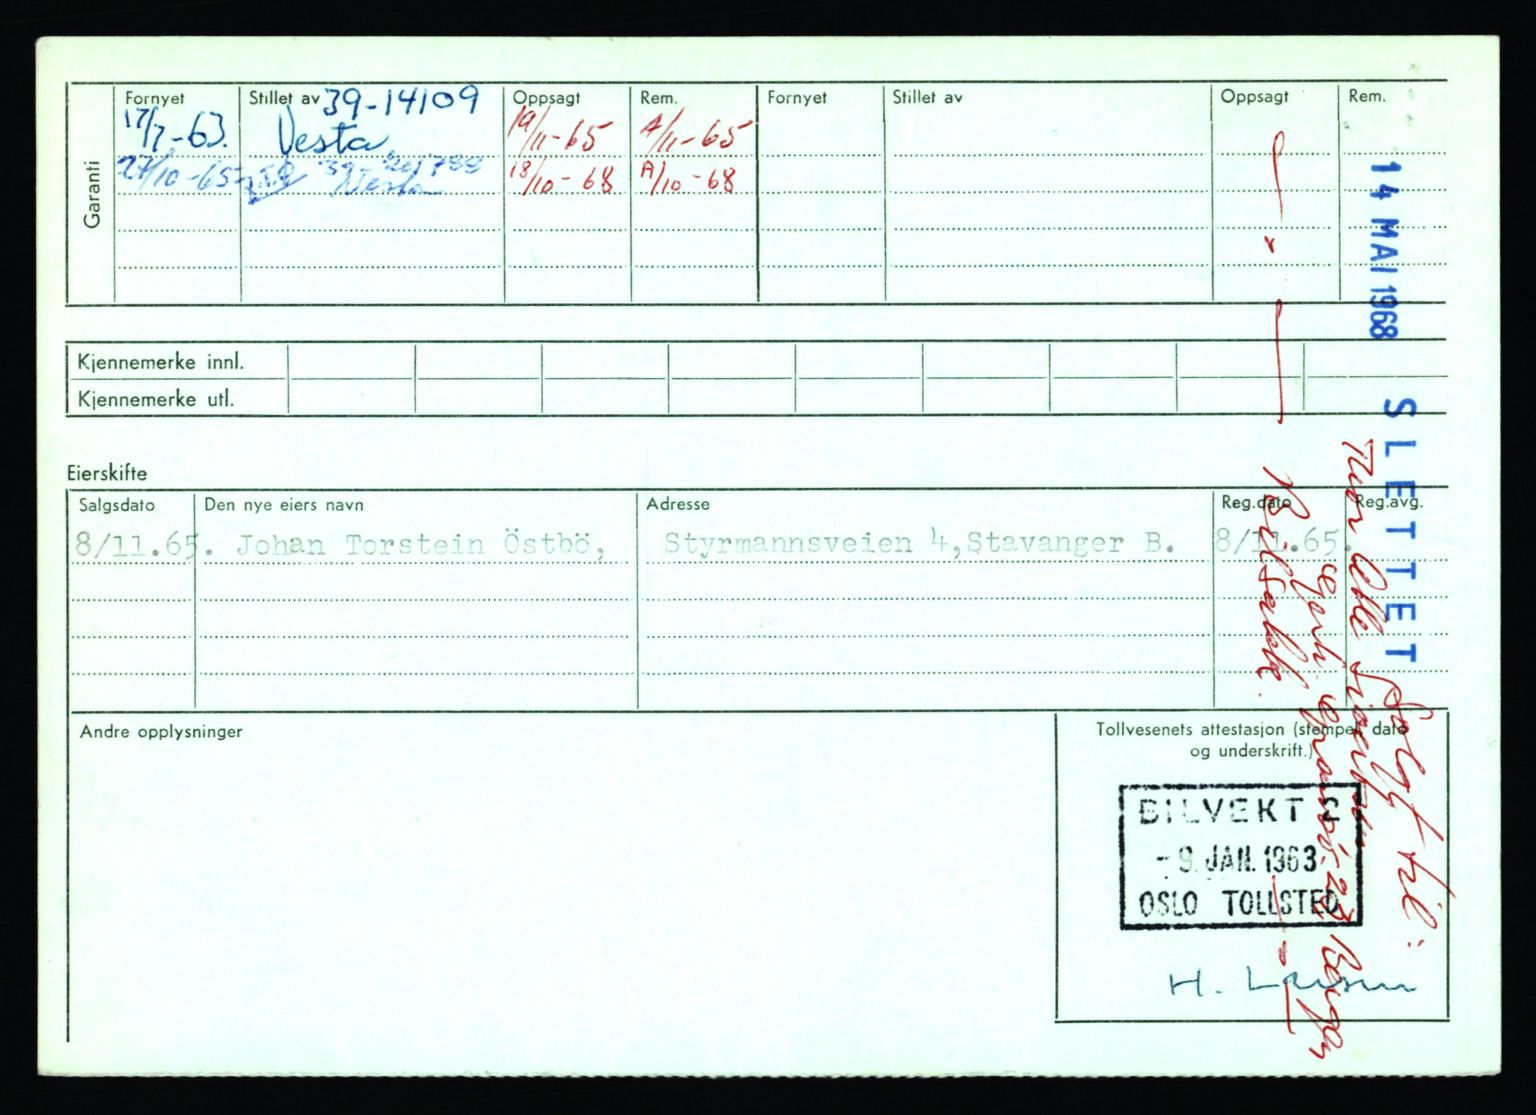 Fornyet Stillet av 39-14109 Oppsagt Rem. Fornyet Stillet av Oppsagt Rem.
17/7-63. Vesta 19/11-65 A/11-65
27/10-65 Vesta 18/10-68 A/10-68
Garanti
14 MAI 1968
SLETTET
Kjennemerke innl.
Kjennemerke utl.
Eierskifte
Salgsdato Den nye eiers navn Adresse Reg.dato Reg.avg.
8/11.65. Johan Torstein Östbö, Styrmannsveien 4,Stavanger B. 8/11.65.
Solgt til:
Thor Olle
Bergen
Bilsakk.
Andre opplysninger
Tollvesenets attestasjon (stempel, dato
og underskrift.)
BILVEKT 2
- 9. JAN. 1963
OSLO TOLLSTED
H. Larsen